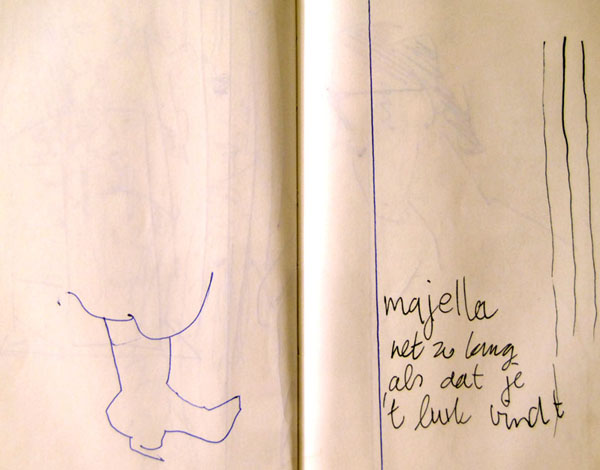 majella
net zo lang
als dat je
't leuk vindt